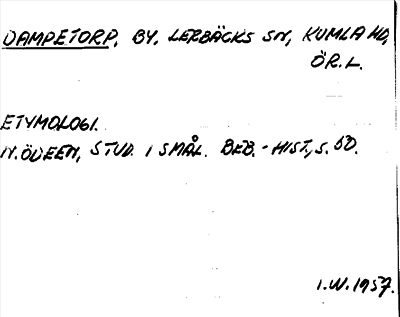 DAMPETORP, BY, LERBÄCKS SN, KUMLA HD,
ÖR.L.
ETYMOLOGI.
N.ÖDEEN, STUD. I SMÅL. BEB.-HIST, S. 50.
I.W.1957.